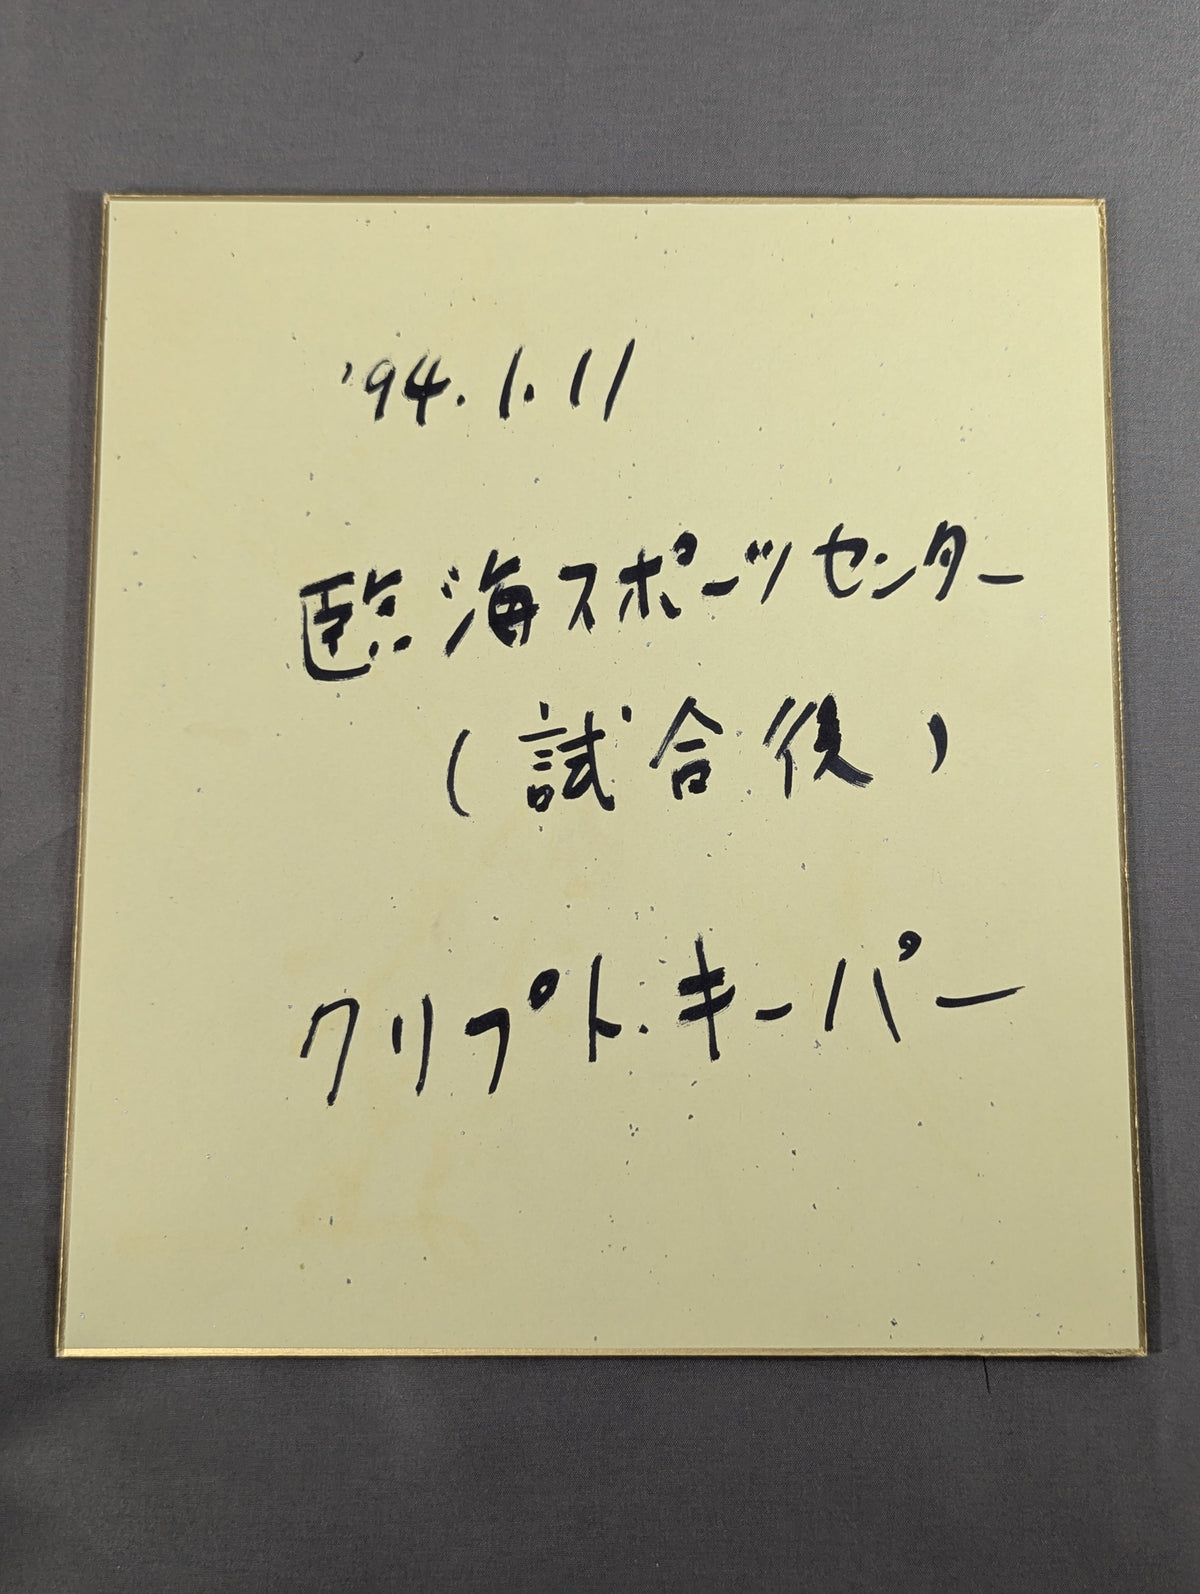 '94.1.11
臨海スポーツセンター
(試合後)
クリプト・キーパー